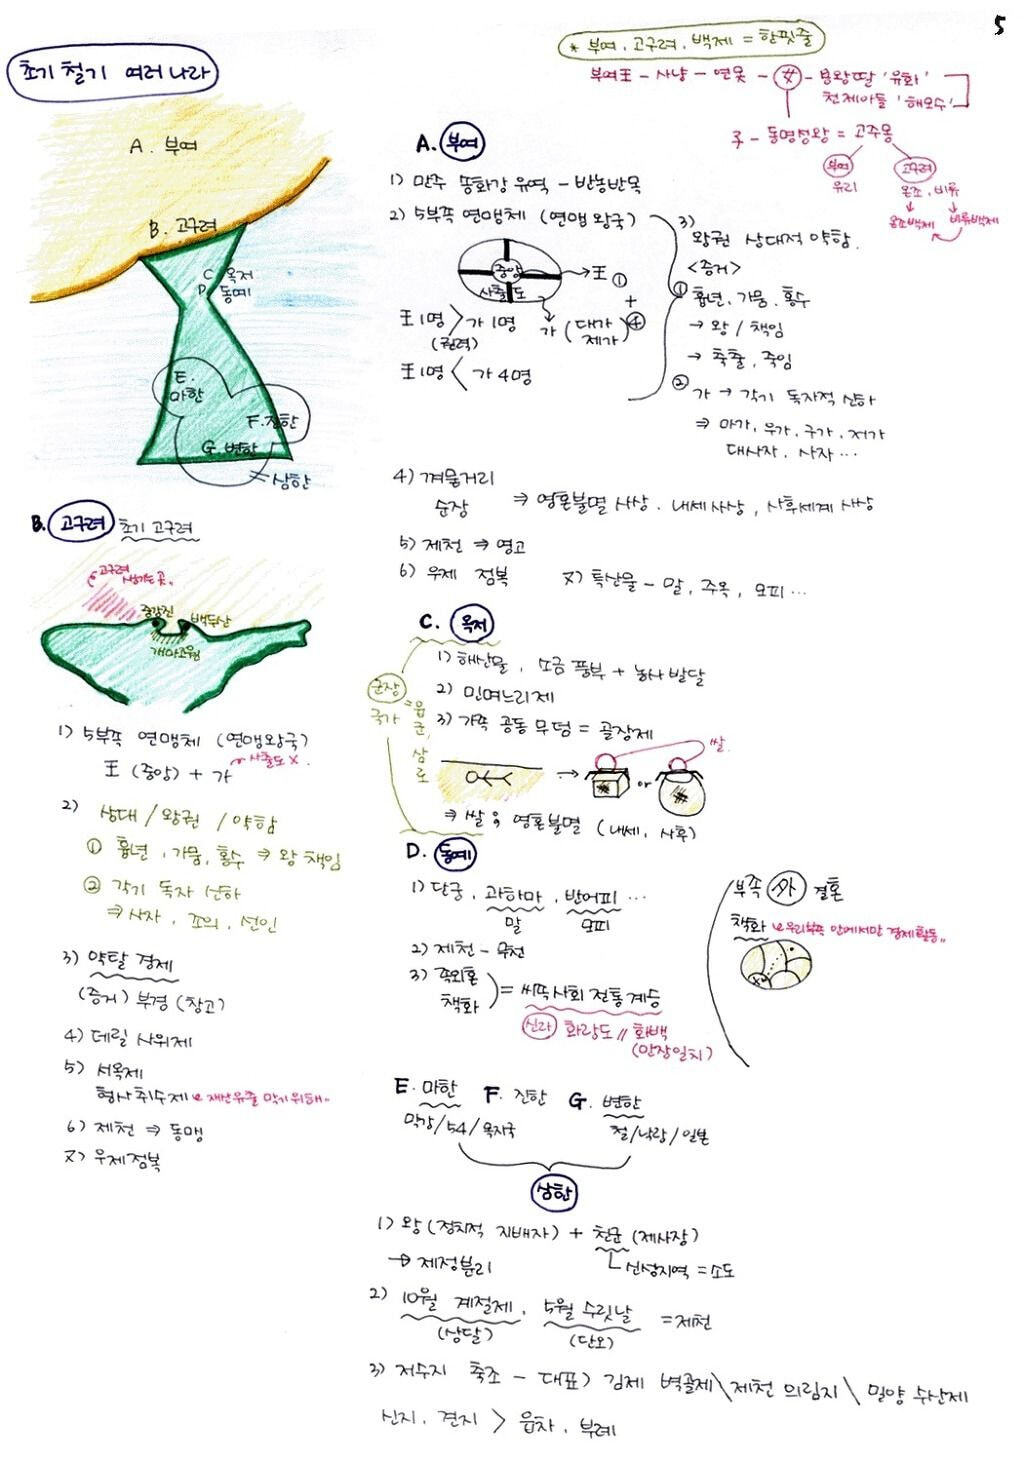 5
초기 철기 여러나라
* 부여, 고구려, 백제 = 한핏줄
부여王 - 사냥 - 연못 - 女 - 용왕딸 '유화'
천제아들 '해모수'
子 - 동명성왕 = 고주몽
부여 고구려
유리 온조, 비류
온조백제 비류백제
A. 부여
B. 고구려
C 옥저
D 동예
E. 마한
F. 진한
G. 변한
= 삼한
A. 부여
1) 만주 송화강 유역 - 반농반목
2) 5부족 연맹체 (연맹 왕국)
중앙 → 王 ①
사출도
+
가 (대가 제가) ④
王1명 > 가 1명
(권력)
王1명 < 가 4명
3) 왕권 상대적 약함.
<증거>
① 흉년, 가뭄, 홍수
→ 왕 / 책임
→ 축출, 죽임
② 가 → 각기 독자적 산하
⇒ 마가, 우가, 구가, 저가
대사자, 사자 ...
4) 껴묻거리
순장 ⇒ 영혼불멸 사상. 내세사상, 사후세계 사상
5) 제천 ⇒ 영고
6) 우제 점복 7) 특산물 - 말, 주옥, 모피 ...
B. 고구려 초기 고구려
고구려 생기는 곳.
중강진 백두산
개마고원
1) 5부족 연맹체 (연맹왕국)
王 (중앙) + 가 사출도 X.
2) 상대 / 왕권 / 약함
① 흉년, 가뭄, 홍수 ⇒ 왕 책임
② 각기 독자 산하
⇒ 사자, 조의, 선인
3) 약탈 경제
(증거) 부경 (창고)
4) 데릴 사위제
5) 서옥제
형사취수제 재산유출 막기위해..
6) 제천 ⇒ 동맹
7) 우제점복
C. 옥저
1) 해산물, 소금 풍부 + 농사 발달
2) 민며느리제
3) 가족 공동 무덤 = 골장제
군장국가 = 읍군, 삼로
쌀.
→ or
⇒ 쌀 ; 영혼불멸 (내세, 사후)
D. 동예
1) 단궁, 과하마, 반어피 ...
말 모피
2) 제천 - 무천
3) 족외혼
책화 = 씨족사회 전통 계승
신라 화랑도 // 화백
(만장일치)
부족 外 결혼
책화 우리부족 안에서만 경제활동..
E. 마한 F. 진한 G. 변한
막강 / 54 / 목지국 철 / 낙랑 / 일본
삼한
1) 왕 (정치적 지배자) + 천군 (제사장)
→ 제정분리 신성지역 = 소도
2) 10월 계절제, 5월 수릿날 = 제천
(상달) (단오)
3) 저수지 축조 - 대표> 김제 벽골제 \ 제천 의림지 \ 밀양 수산제
신지, 견지 > 읍차, 부례